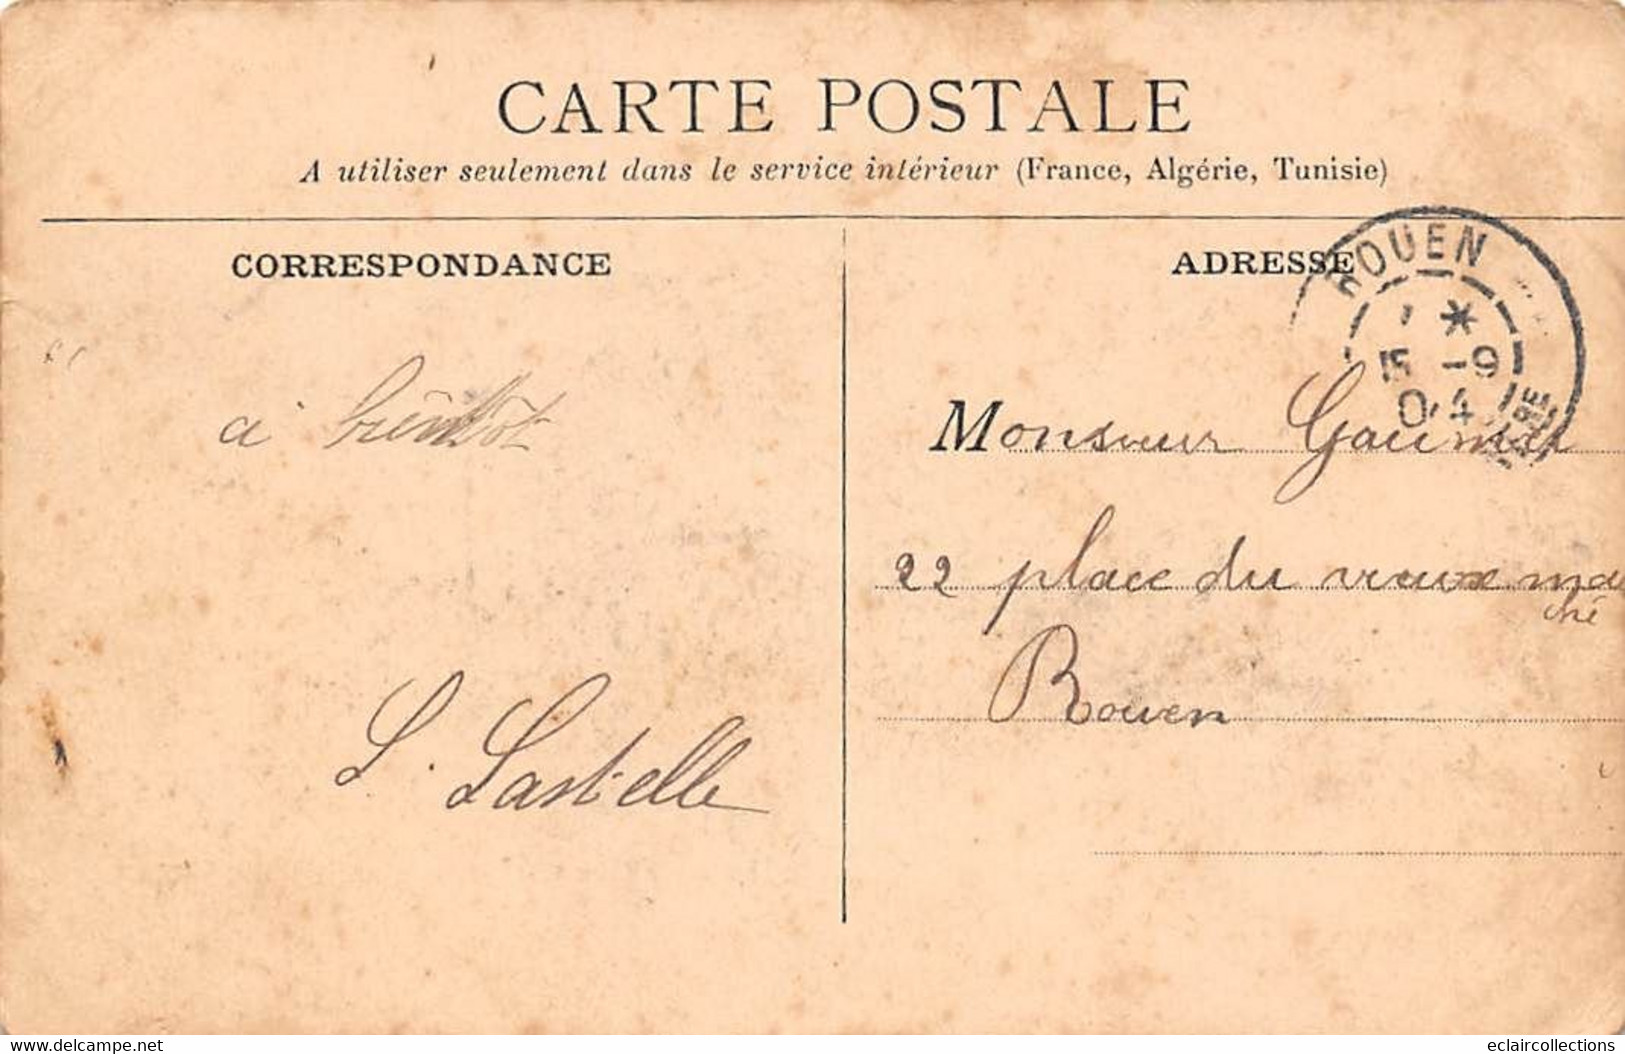 CARTE POSTALE
A utiliser seulement dans le service intérieur (France, Algérie, Tunisie)
CORRESPONDANCE
ADRESSE
ROUEN
15 -9
04
à bientôt
L. Lastelle
Monsieur
22 place du vieux mar
ché
Rouen
www.delcampe.net
eclaircollections